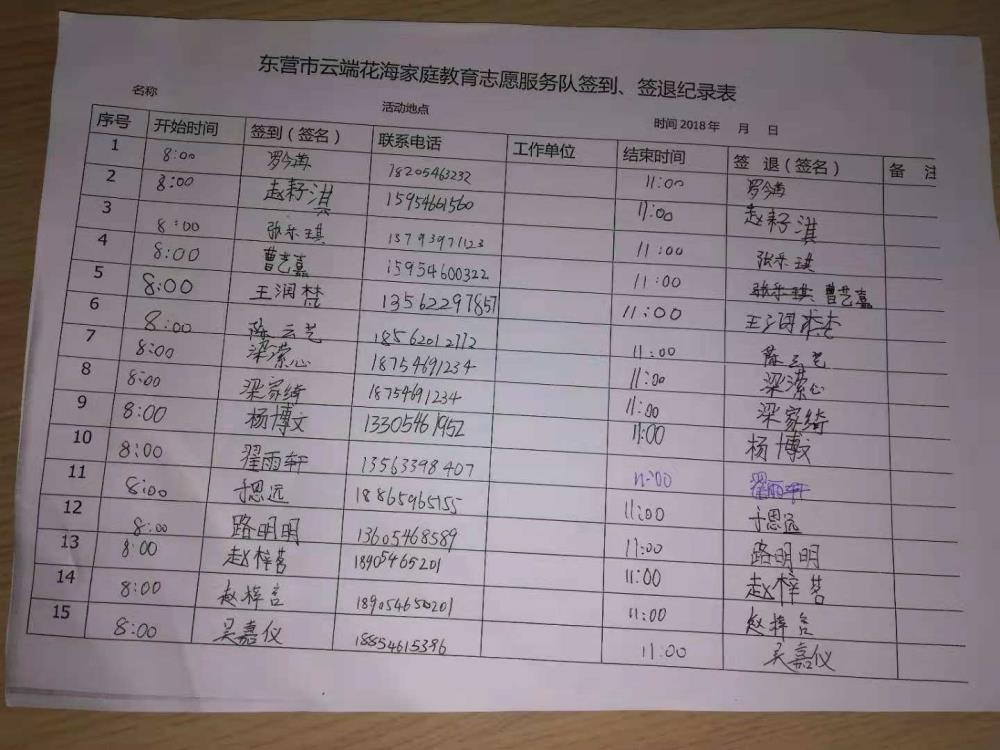 东营市云端花海家庭教育志愿服务队签到、签退纪录表
名称 活动地点 时间 2018年 月 日
序号 开始时间 签到（签名） 联系电话 工作单位 结束时间 签 退（签名） 备 注
1 8:00 罗今满 18205463232 11:00 罗今满
2 8:00 赵籽淇 15954661560 11:00 赵籽淇
3 8:00 张乐琪 18793971123 11:00 张乐琪
4 8:00 曹艺嘉 15954600322 11:00 张乐琪 曹艺嘉
5 8:00 王润梵 13562297857 11:00 王润梵
6 8:00 陈云艺 11:00 陈云艺
7 8:00 梁潆心 18754691234 11:00 梁潆心
8 8:00 梁家绮 18754691234 11:00 梁家绮
9 8:00 杨博文 13305461952 11:00 杨博文
10 8:00 翟雨轩 13563398407 11:00 翟雨轩
11 8:00 于恩远 18865965155 11:00 于恩远
12 8:00 路明明 13605468589 11:00 路明明
13 8:00 赵梓茗 18905465201 11:00 赵梓茗
14 8:00 赵梓言 189054650201 11:00 赵梓言
15 8:00 吴嘉仪 18854615396 11:00 吴嘉仪